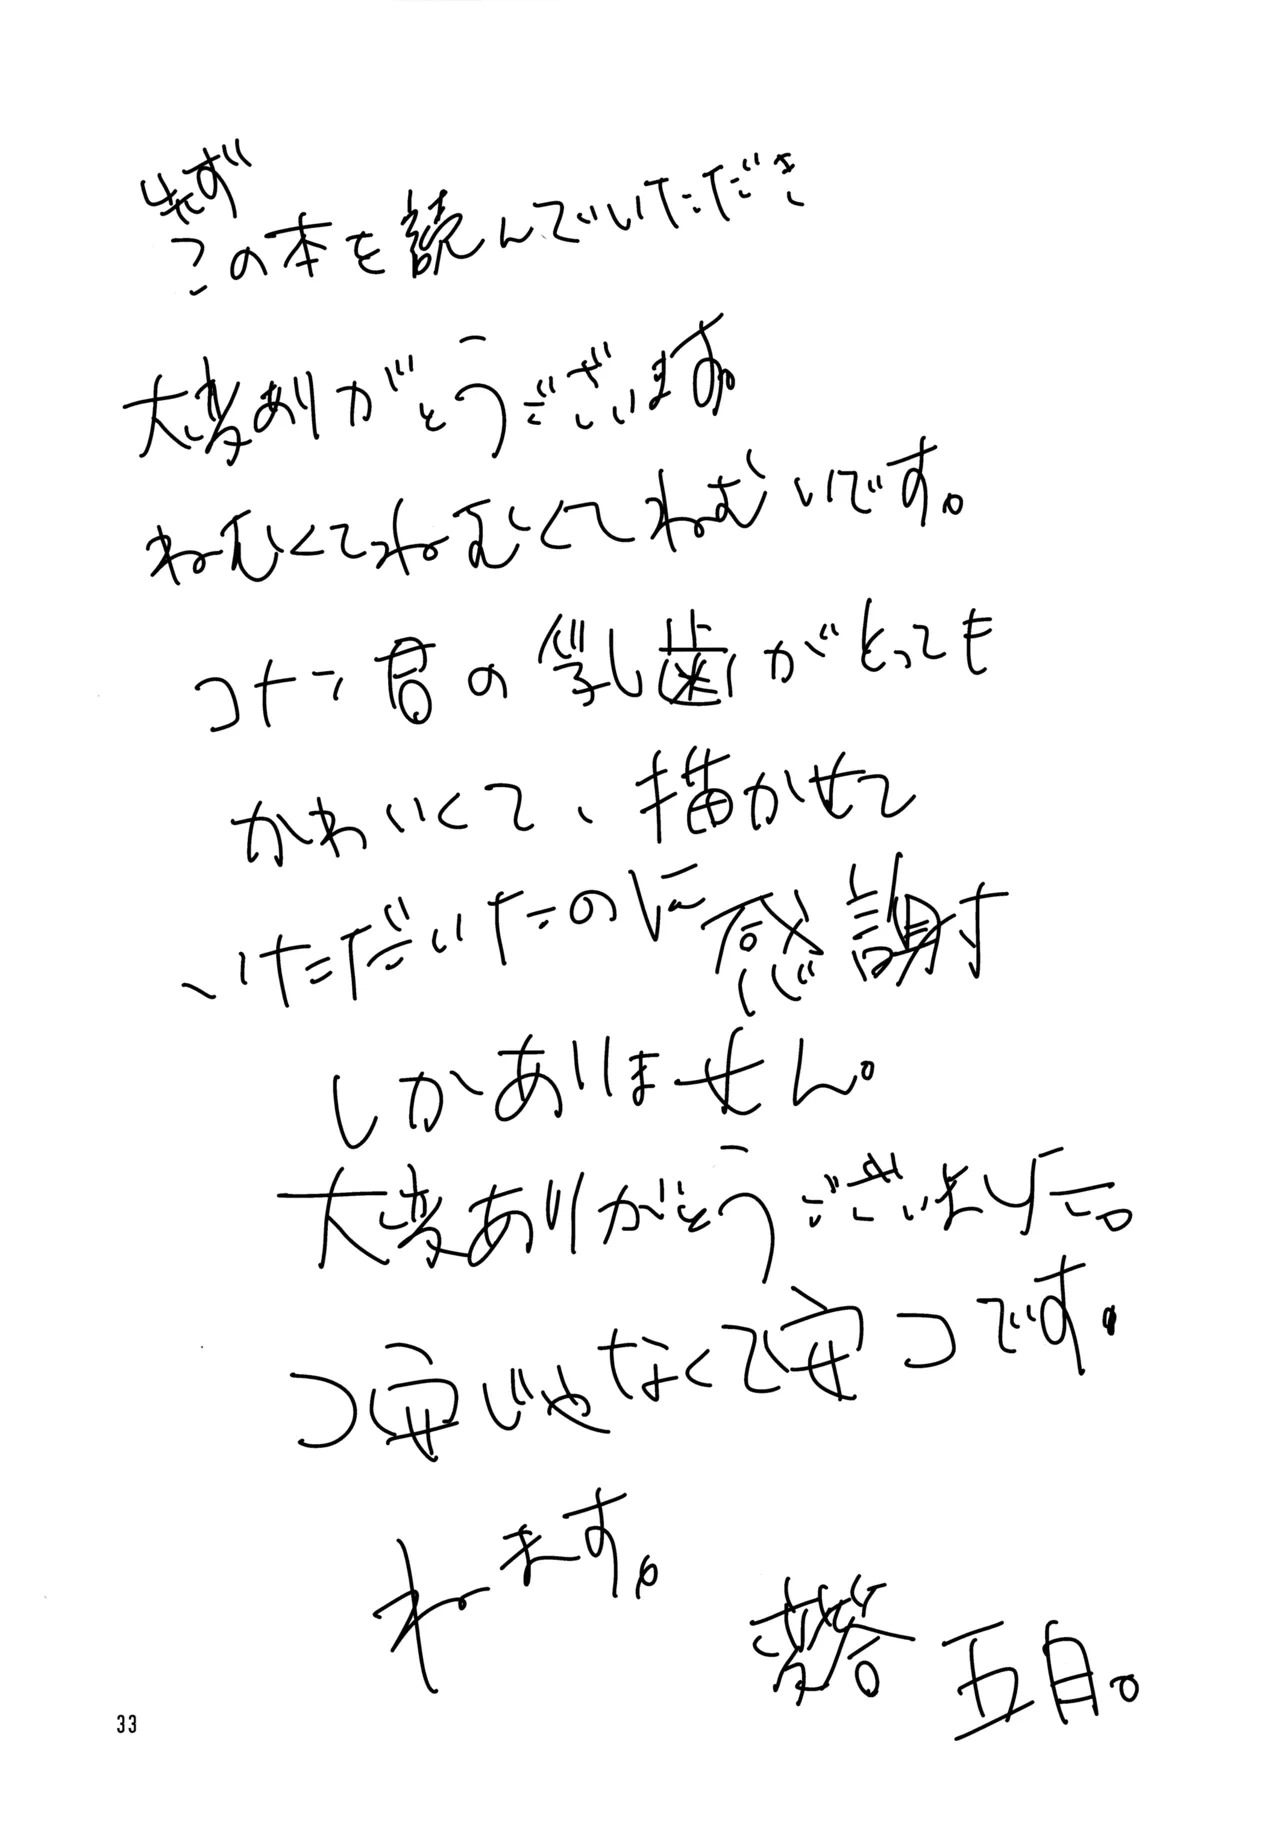 先ず
この本を読んでいただき
大変ありがとうございます。
ねむくてねむくてねむいです。
コナン君の乳歯がとっても
かわいくて、描かせて
いただいたのに感謝
しかありません。
大変ありがとうございました。
つ安じゃなくて安つです。
ねます。
五月。
33